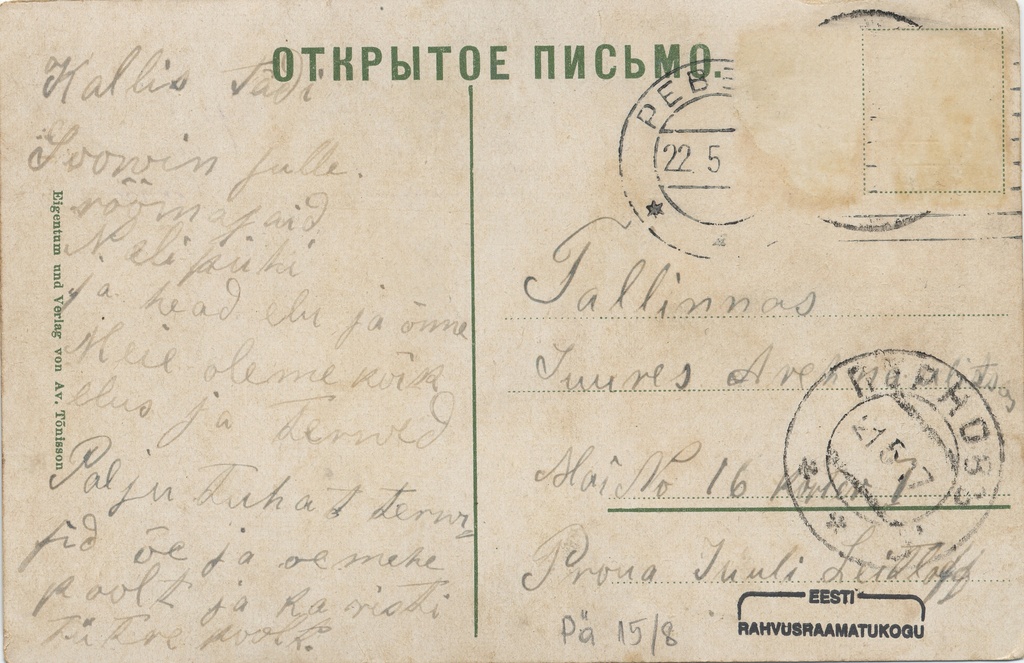 ОТКРЫТОЕ ПИСЬМО.
Kallis Tädi
Soowin sulle.
rõõmsaid
Nelipühi
ja head elu ja õnne
Meie oleme kõik
elus ja terwed
Palju tuhat terwi-
sid õe ja õemehe
poolt ja ka risti
tütre poolt.
Eigentum und Verlag von Av. Tõnisson
РЕВЕ
22 5
Tallinnas
Suures
Mai No 16
Proua Juuli
21 5 17
EESTI
RAHVUSRAAMATUKOGU
Pä 15/8